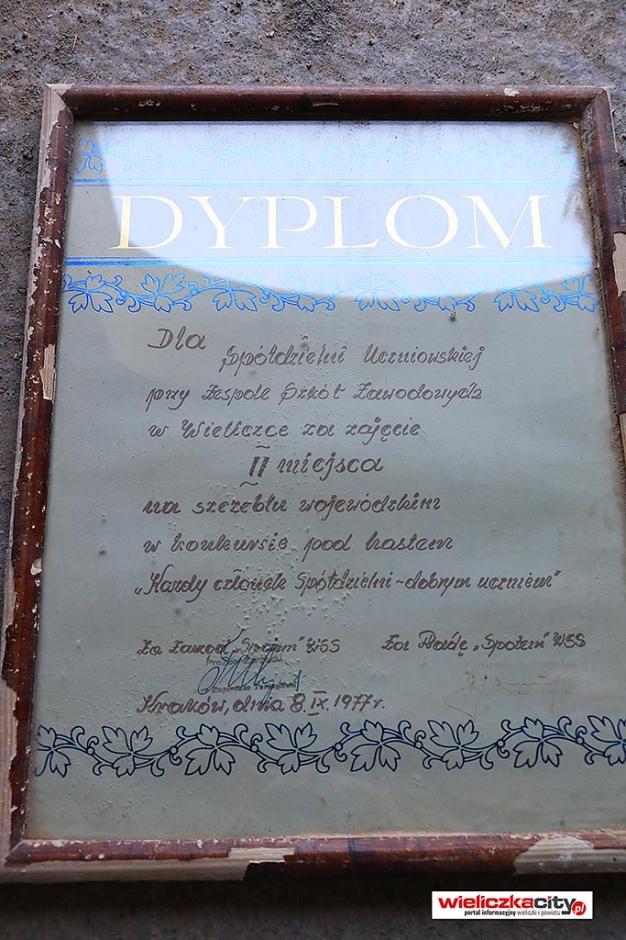 DYPLOM
Dla Spółdzielni Uczniowskiej
przy Zespole Szkół Zawodowych
w Wieliczce za zajęcie
II miejsca
na szczeblu wojewódzkim
w konkursie pod hasłem
"Każdy członek Spółdzielni - dobrym uczniem"
Za Zarząd "Społem" WSS Za Radę "Społem" WSS
Kraków, dnia 8.IX.1977r.
wieliczkacity.pl
portal informacyjny wieliczki i powiatu